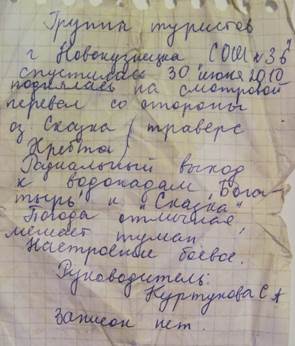 Группа туристов
г Новокузнецка СОШ № 36
спустилась 30 июня 2010
поднялась на смотровой
перевал со стороны
оз Сказка (траверс
Хребта)
Радиальный выход
к водопадам „Бога
тырь" и „Сказка"
Погода отличная,
мешает туман
Настроение боевое.
Руководитель:
Куртукова С А
Записок нет.